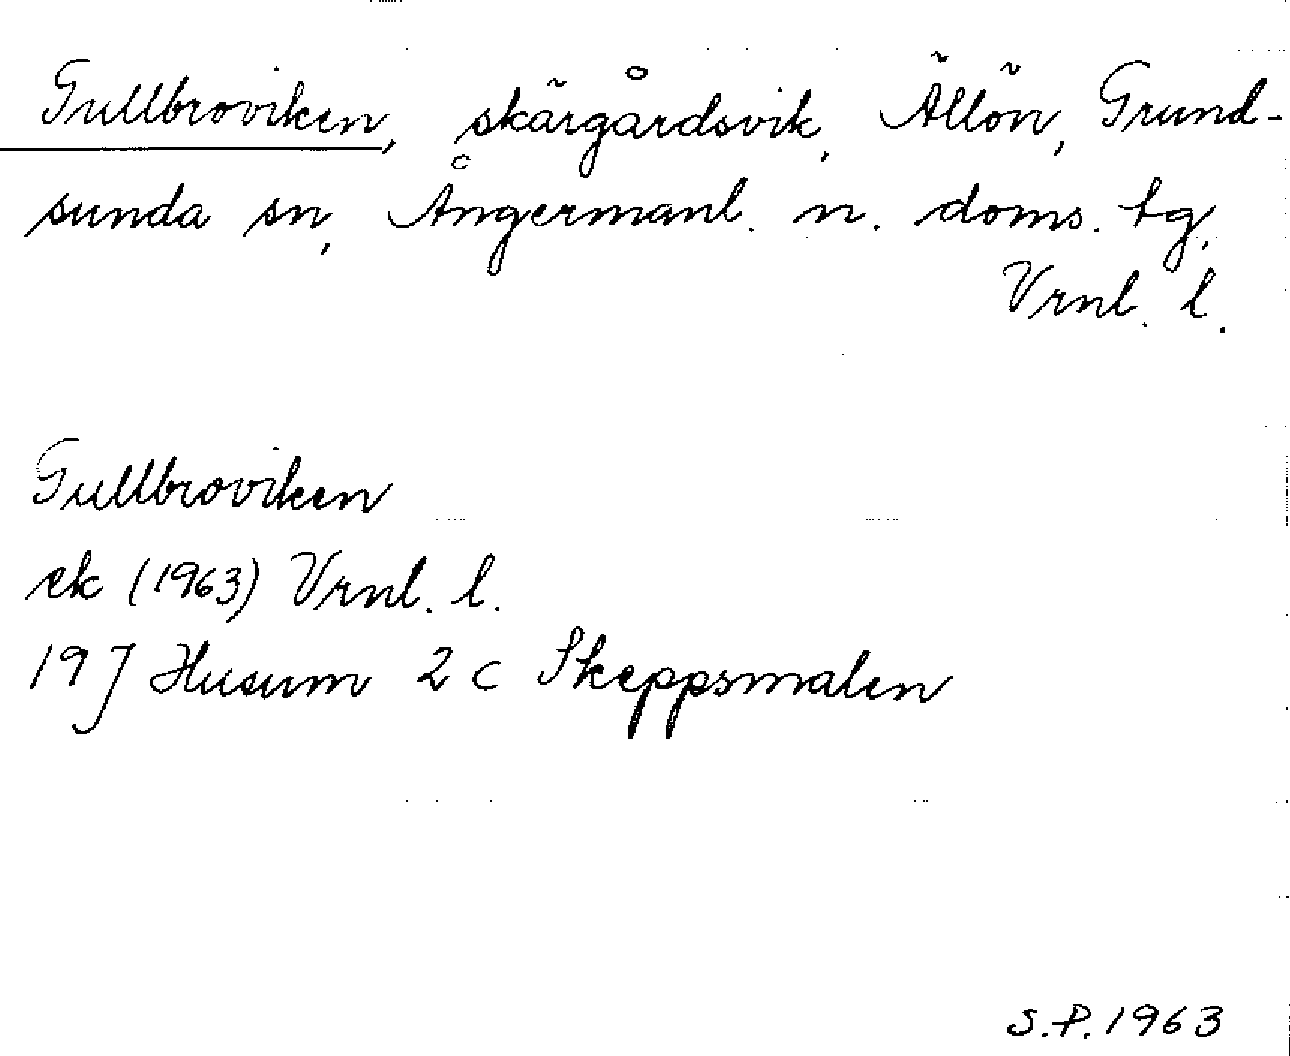 Gullbroviken, skärgårdsvik, Ällön, Grund-
sunda sn, Ångermanl. n. doms. tg,
Vrnl. l.
Gullbroviken
ek (1963) Vrnl. l.
19J Husum 2c Skeppsmalen
S.P. 1963